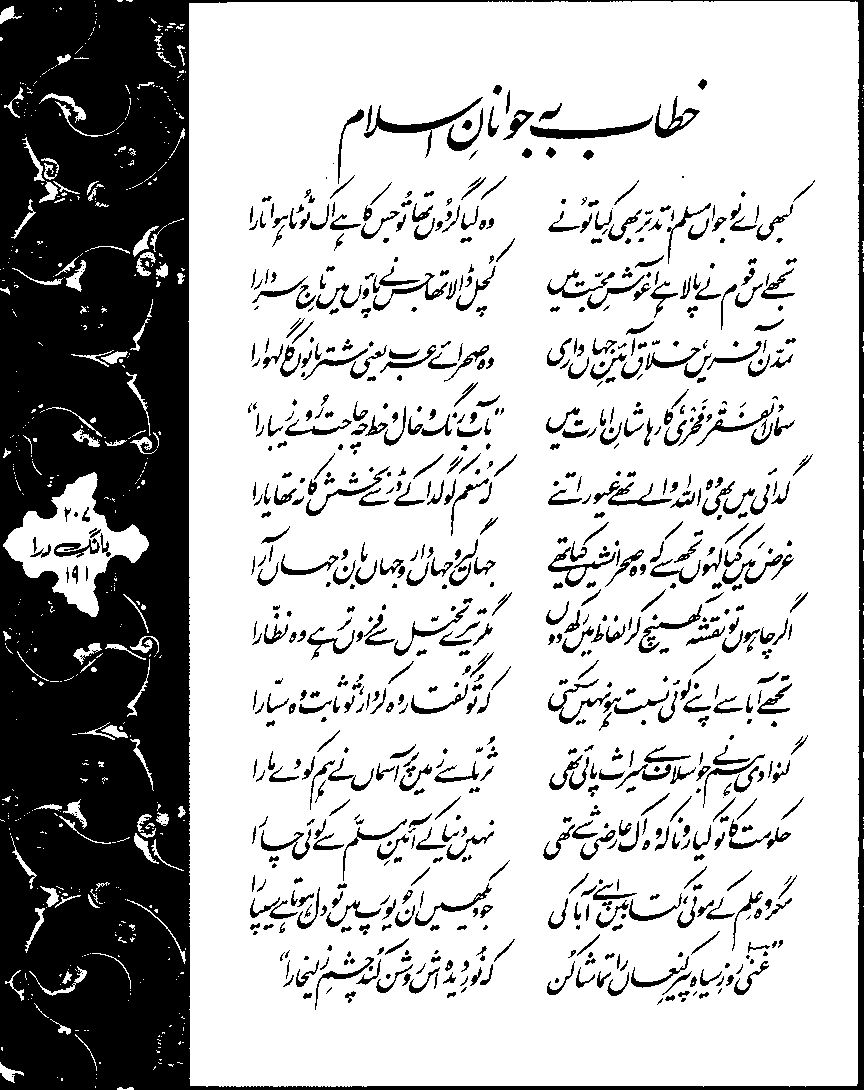 خطاب بہ جوانانِ اسلام
کبھی اے نوجواں مسلم! تدبّر بھی کِیا تُو نے وہ کیا گردُوں تھا تُو جس کا ہے اک ٹُوٹا ہوا تارا
تجھے اس قوم نے پالا ہے آغوشِ محبّت میں کُچل ڈالا تھا جس نے پاؤں میں تاجِ سرِ دارا
تمدّن آفریں، خلاّقِ آئینِ جہاں داری وہ صحرائے عرب یعنی شتربانوں کا گہوارا
سماں 'الفَقْرُ فَخْرِی' کا رہا شانِ امارت میں "بآب و رنگ و خال و خط چہ حاجت رُوے زیبا را"
گدائی میں بھی وہ اللہ والے تھے غیور اتنے کہ مُنعم کو گدا کے ڈر سے بخشش کا نہ تھا یارا
غرض مَیں کیا کہُوں تجھ سے کہ وہ صحرا نشیں کیا تھے جہاں گیر و جہاں دار و جہاں بان و جہاں آرا
اگر چاہوں تو نقشہ کھینچ کر الفاظ میں رکھ دوں مگر تیرے تخیّل سے فزوں تر ہے وہ نظّارا
تجھے آبا سے اپنے کوئی نسبت ہو نہیں سکتی کہ تُو گُفتار وہ کردار، تُو ثابت وہ سیّارا
گنوا دی ہم نے جو اسلاف سے میراث پائی تھی ثُریّا سے زمیں پر آسماں نے ہم کو دے مارا
حکومت کا تو کیا رونا کہ وہ اک عارضی شے تھی نہیں دنیا کے آئینِ مسلَّم سے کوئی چارا
مگر وہ عِلم کے موتی، کتابیں اپنے آبا کی جو دیکھیں ان کو یورپ میں تو دل ہوتا ہے سیپارا
"غنیؔ! روزِ سیاہِ پیرِ کنعاں را تماشا کُن کہ نُورِ دیدہ اش روشن کُند چشمِ زلیخا را"
۲۰۷
بانگِ درا
۱۹۱